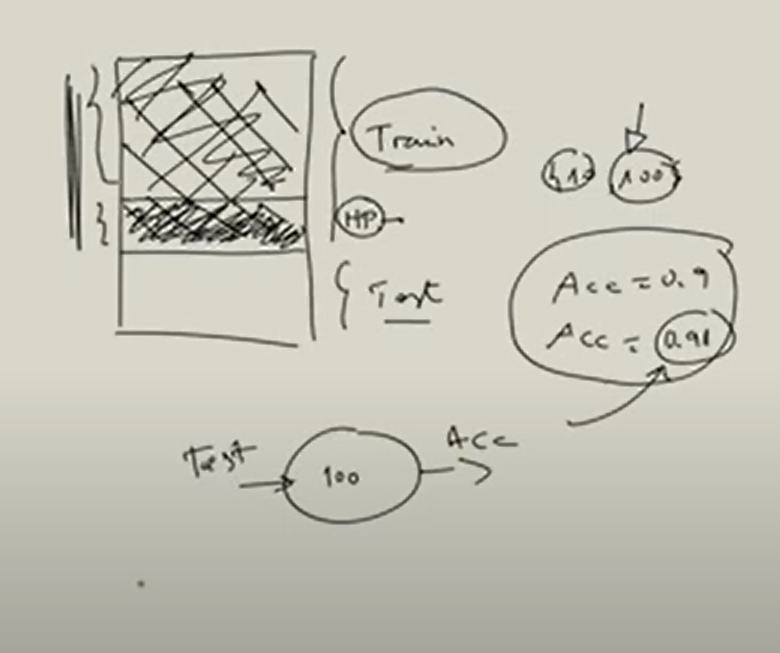 Train
HP
Test
10 100
Acc = 0.9
Acc = 0.91
Test
100
Acc